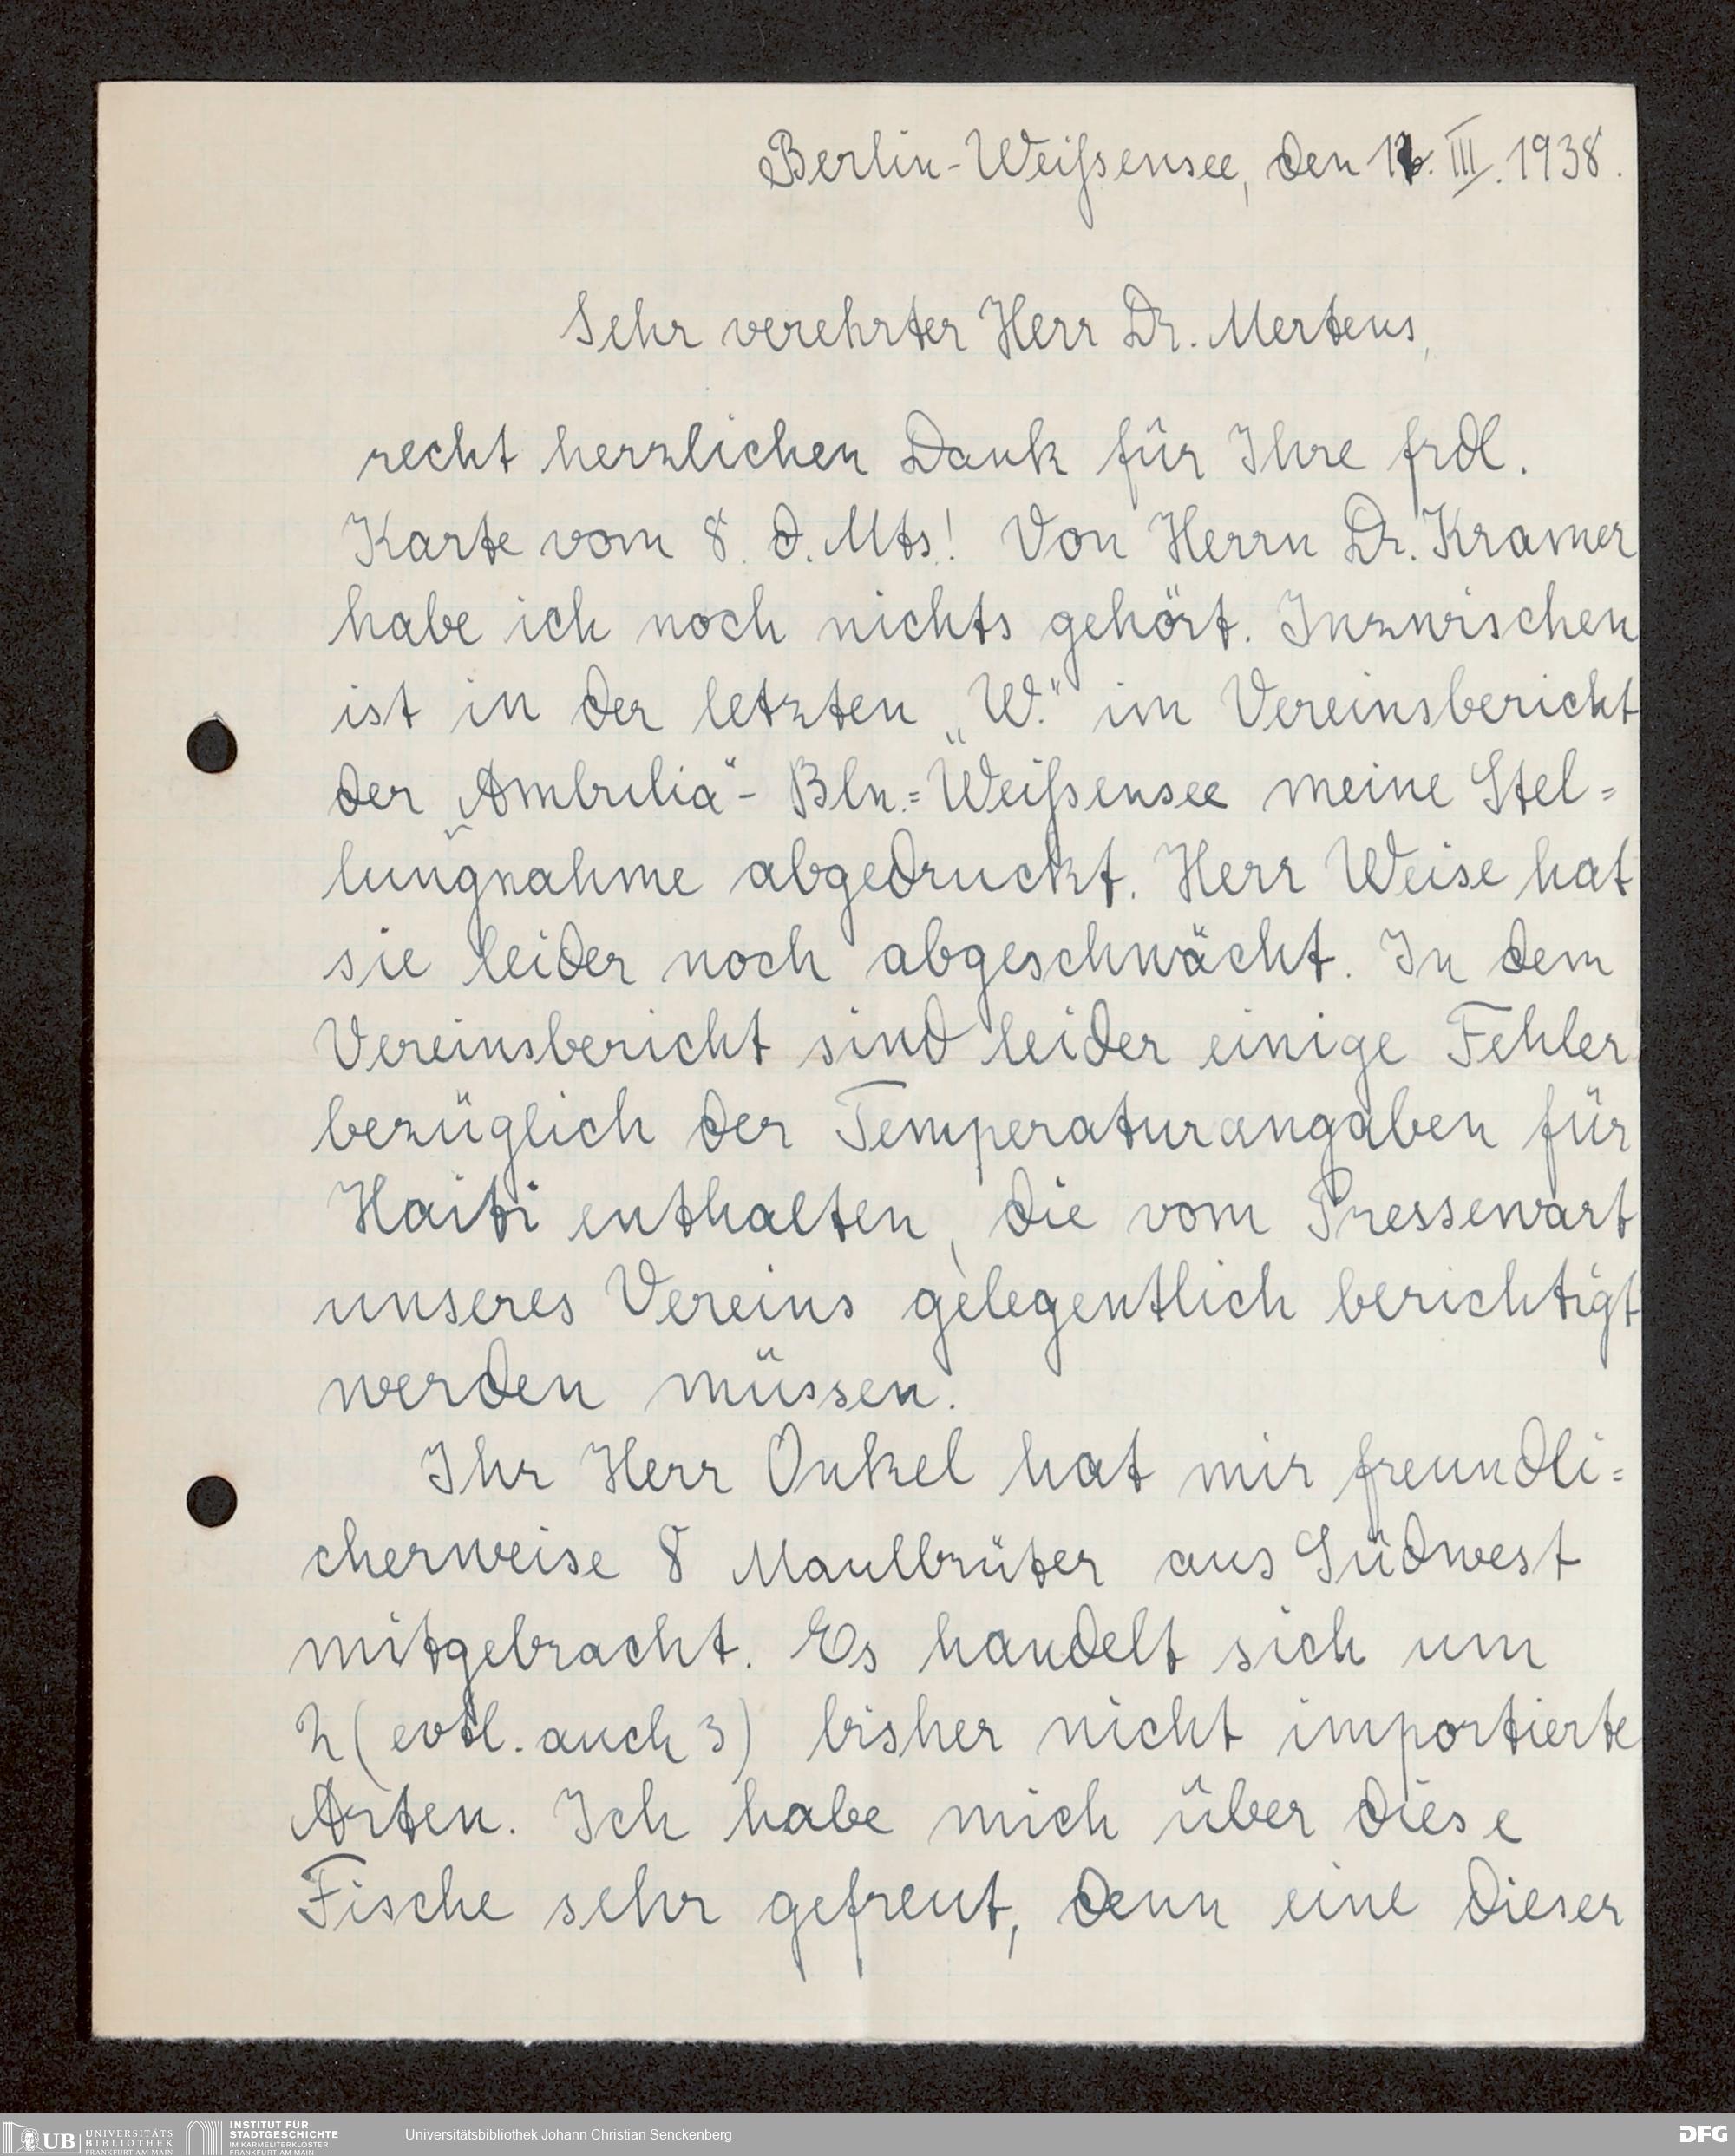 Berlin-Weißensee, den 12. III. 1938.
Sehr verehrter Herr Dr. Mertens,
recht herzlichen Dank für Ihre frdl.
Karte vom 8. d. Mts.! Von Herrn Dr. Kramer
habe ich noch nichts gehört. Inzwischen
ist in der letzten „W." im Vereinsbericht
der „Ambulia"- Bln.=Weißensee meine Stel=
lungnahme abgedruckt. Herr Weise hat
sie leider noch abgeschwächt. In dem
Vereinsbericht sind leider einige Fehler
bezüglich der Temperaturangaben für
Haiti enthalten, die vom Pressewart
unseres Vereins gelegentlich berichtigt
werden müssen.
Ihr Herr Onkel hat mir freundli=
cherweise 8 Maulbrüter aus Südwest
mitgebracht. Es handelt sich um
2 (evtl. auch 3) bisher nicht importierte
Arten. Ich habe mich über diese
Fische sehr gefreut, denn eine dieser
UB UNIVERSITÄTS
BIBLIOTHEK
FRANKFURT AM MAIN
INSTITUT FÜR
STADTGESCHICHTE
IM KARMELITERKLOSTER
FRANKFURT AM MAIN
Universitätsbibliothek Johann Christian Senckenberg
DFG